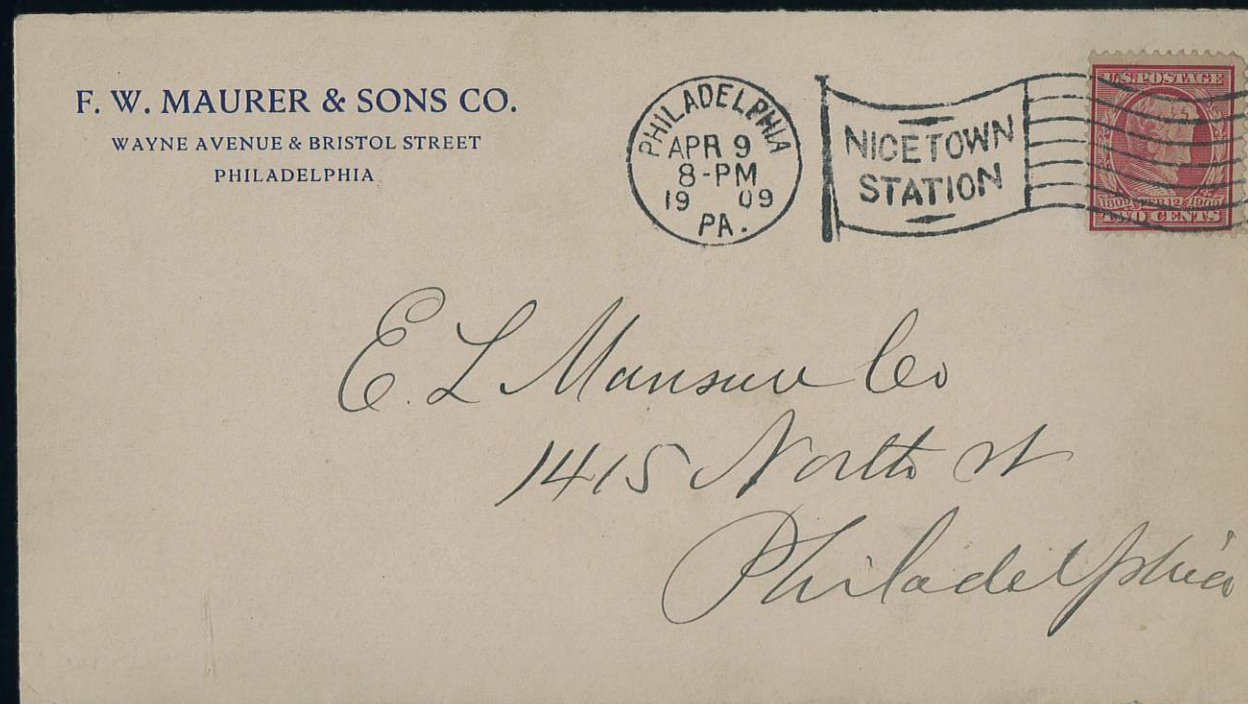 F. W. MAURER & SONS CO.
WAYNE AVENUE & BRISTOL STREET
PHILADELPHIA
PHILADELPHIA
APR 9
8-PM
19 09
PA.
NICETOWN
STATION
U.S. POSTAGE
1809 FEB 12 1909
TWO CENTS
E. L Mansure Co
1415 North St
Philadelphia